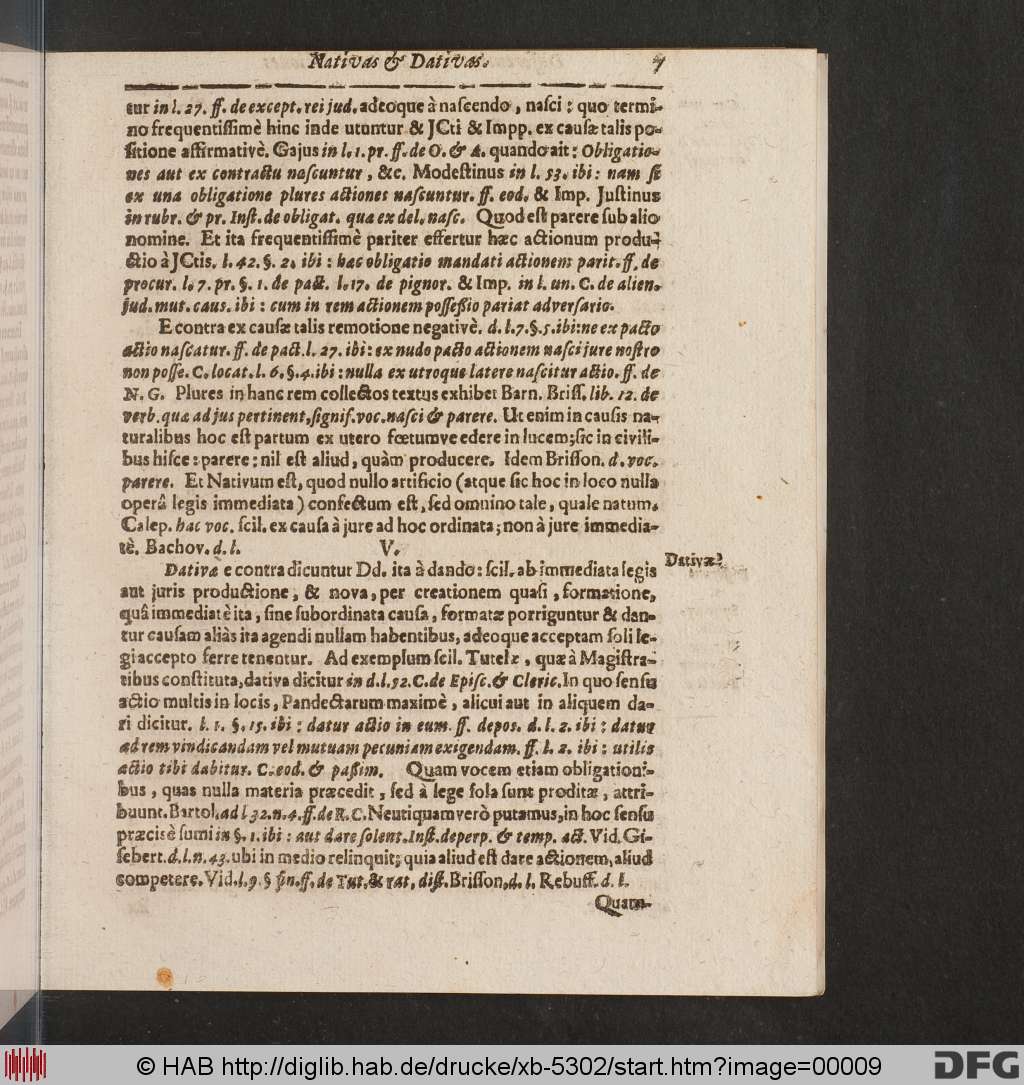 Nativas & Dativas. 7
tur in l. 27. ff. de except. rei jud. adeoque à nascendo, nasci: quo termi-
no frequentissimè hinc inde utuntur & JCti & Impp. ex causæ talis po-
sitione affirmativè. Gajus in l. 1. pr. ff. de O. & A. quando ait: Obligatio-
nes aut ex contractu nascuntur, &c. Modestinus in l. 53. ibi: nam si
ex una obligatione plures actiones nascuntur. ff. eod. & Imp. Justinus
in rubr. & pr. Inst. de obligat. qua ex del. nasc. Quod est parere sub alio
nomine. Et ita frequentissimè pariter effertur hæc actionum produ-
ctio à JCtis. l. 42. §. 2. ibi: hac obligatio mandati actionem parit. ff. de
procur. l. 7. pr. §. 1. de pact. l. 17. de pignor. & Imp. in l. un. C. de alien.
jud. mut. caus. ibi: cum in rem actionem possessio pariat adversario.
E contra ex causæ talis remotione negativè. d. l. 7. §. 5. ibi: ne ex pacto
actio nascatur. ff. de pact. l. 27. ibi: ex nudo pacto actionem nasci jure nostro
non posse. C. locat. l. 6. §. 4. ibi: nulla ex utroque latere nascitur actio. ff. de
N. G. Plures in hanc rem collectos textus exhibet Barn. Briss. lib. 12. de
verb. quæ ad jus pertinent, signif. voc. nasci & parere. Ut enim in causis na-
turalibus hoc est partum ex utero fœtumve edere in lucem; sic in civili-
bus hisce: parere: nil est aliud, quàm producere. Idem Brisson. d. voc.
parere. Et Nativum est, quod nullo artificio (atque sic hoc in loco nulla
operâ legis immediata) confectum est, sed omnino tale, quale natum.
Calep. hac voc. scil. ex causa à jure ad hoc ordinata; non à jure immedia-
tè. Bachov. d. l. V.
Dativæ e contra dicuntur Dd. ita à dando: scil. ab immediata legis
aut juris productione, & nova, per creationem quasi, formatione,
quâ immediatè ita, sine subordinata causa, formatæ porriguntur & dan-
tur causam aliàs ita agendi nullam habentibus, adeoque acceptam soli le-
gi accepto ferre tenentur. Ad exemplum scil. Tutelæ, quæ à Magistra-
tibus constituta, dativa dicitur in d. l. 52. C. de Episc. & Cleric. In quo sensu
actio multis in locis, Pandectarum maximè, alicui aut in aliquem da-
ri dicitur. l. 1. §. 15. ibi: datur actio in eum. ff. depos. d. l. 2. ibi: datur
ad rem vindicandam vel mutuam pecuniam exigendam. ff. l. 2. ibi: utilis
actio tibi dabitur. C. eod. & passim. Quam vocem etiam obligationi-
bus, quas nulla materia præcedit, sed à lege sola sunt proditæ, attri-
buunt. Bartol. ad l 32. n. 4. ff. de R. C. Neutiquam verò putamus, in hoc sensu
præcisè sumi in §. 1. ibi: aut dare solent. Inst. de perp. & temp. act. Vid. Gi-
sebert. d. l. n. 43. ubi in medio relinquit; quia aliud est dare actionem, aliud
competere. Vid. l. 9. § fin. ff. de Tut. & rat. dist. Brisson. d. l. Rebuff. d. l.
Quam-
Dativæ?
© HAB http://diglib.hab.de/drucke/xb-5302/start.htm?image=00009
DFG